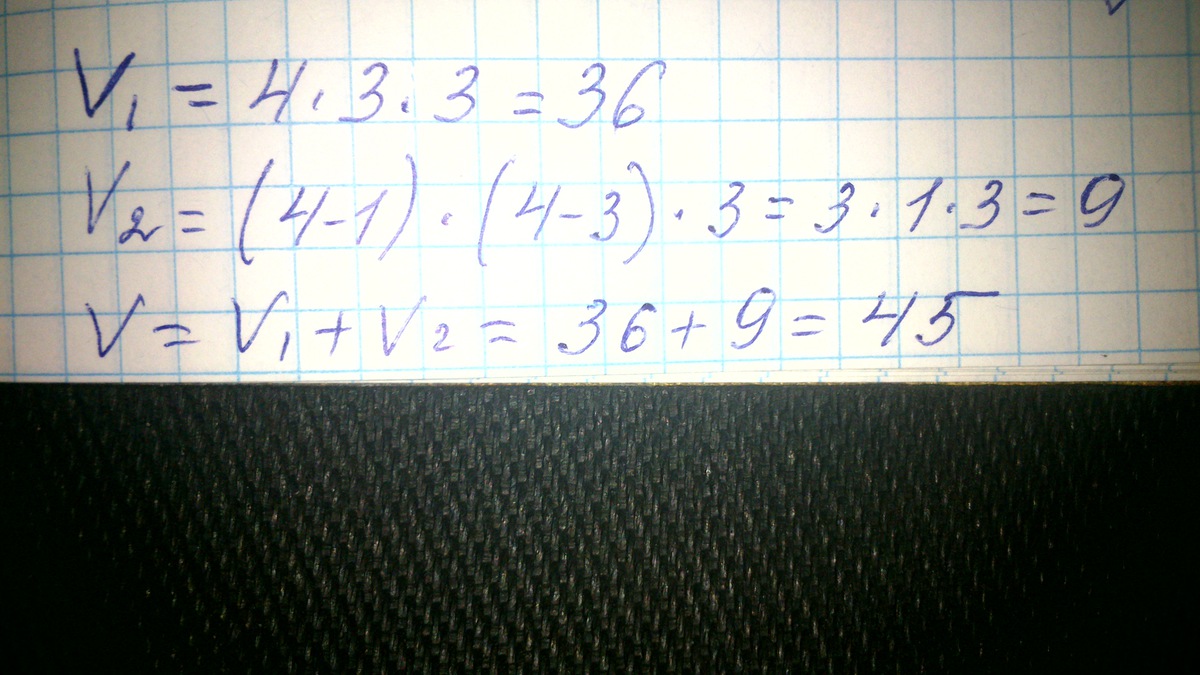 V₁ = 4 · 3 · 3 = 36
V₂ = (4-1) · (4-3) · 3 = 3 · 1 · 3 = 9
V = V₁ + V₂ = 36 + 9 = 45